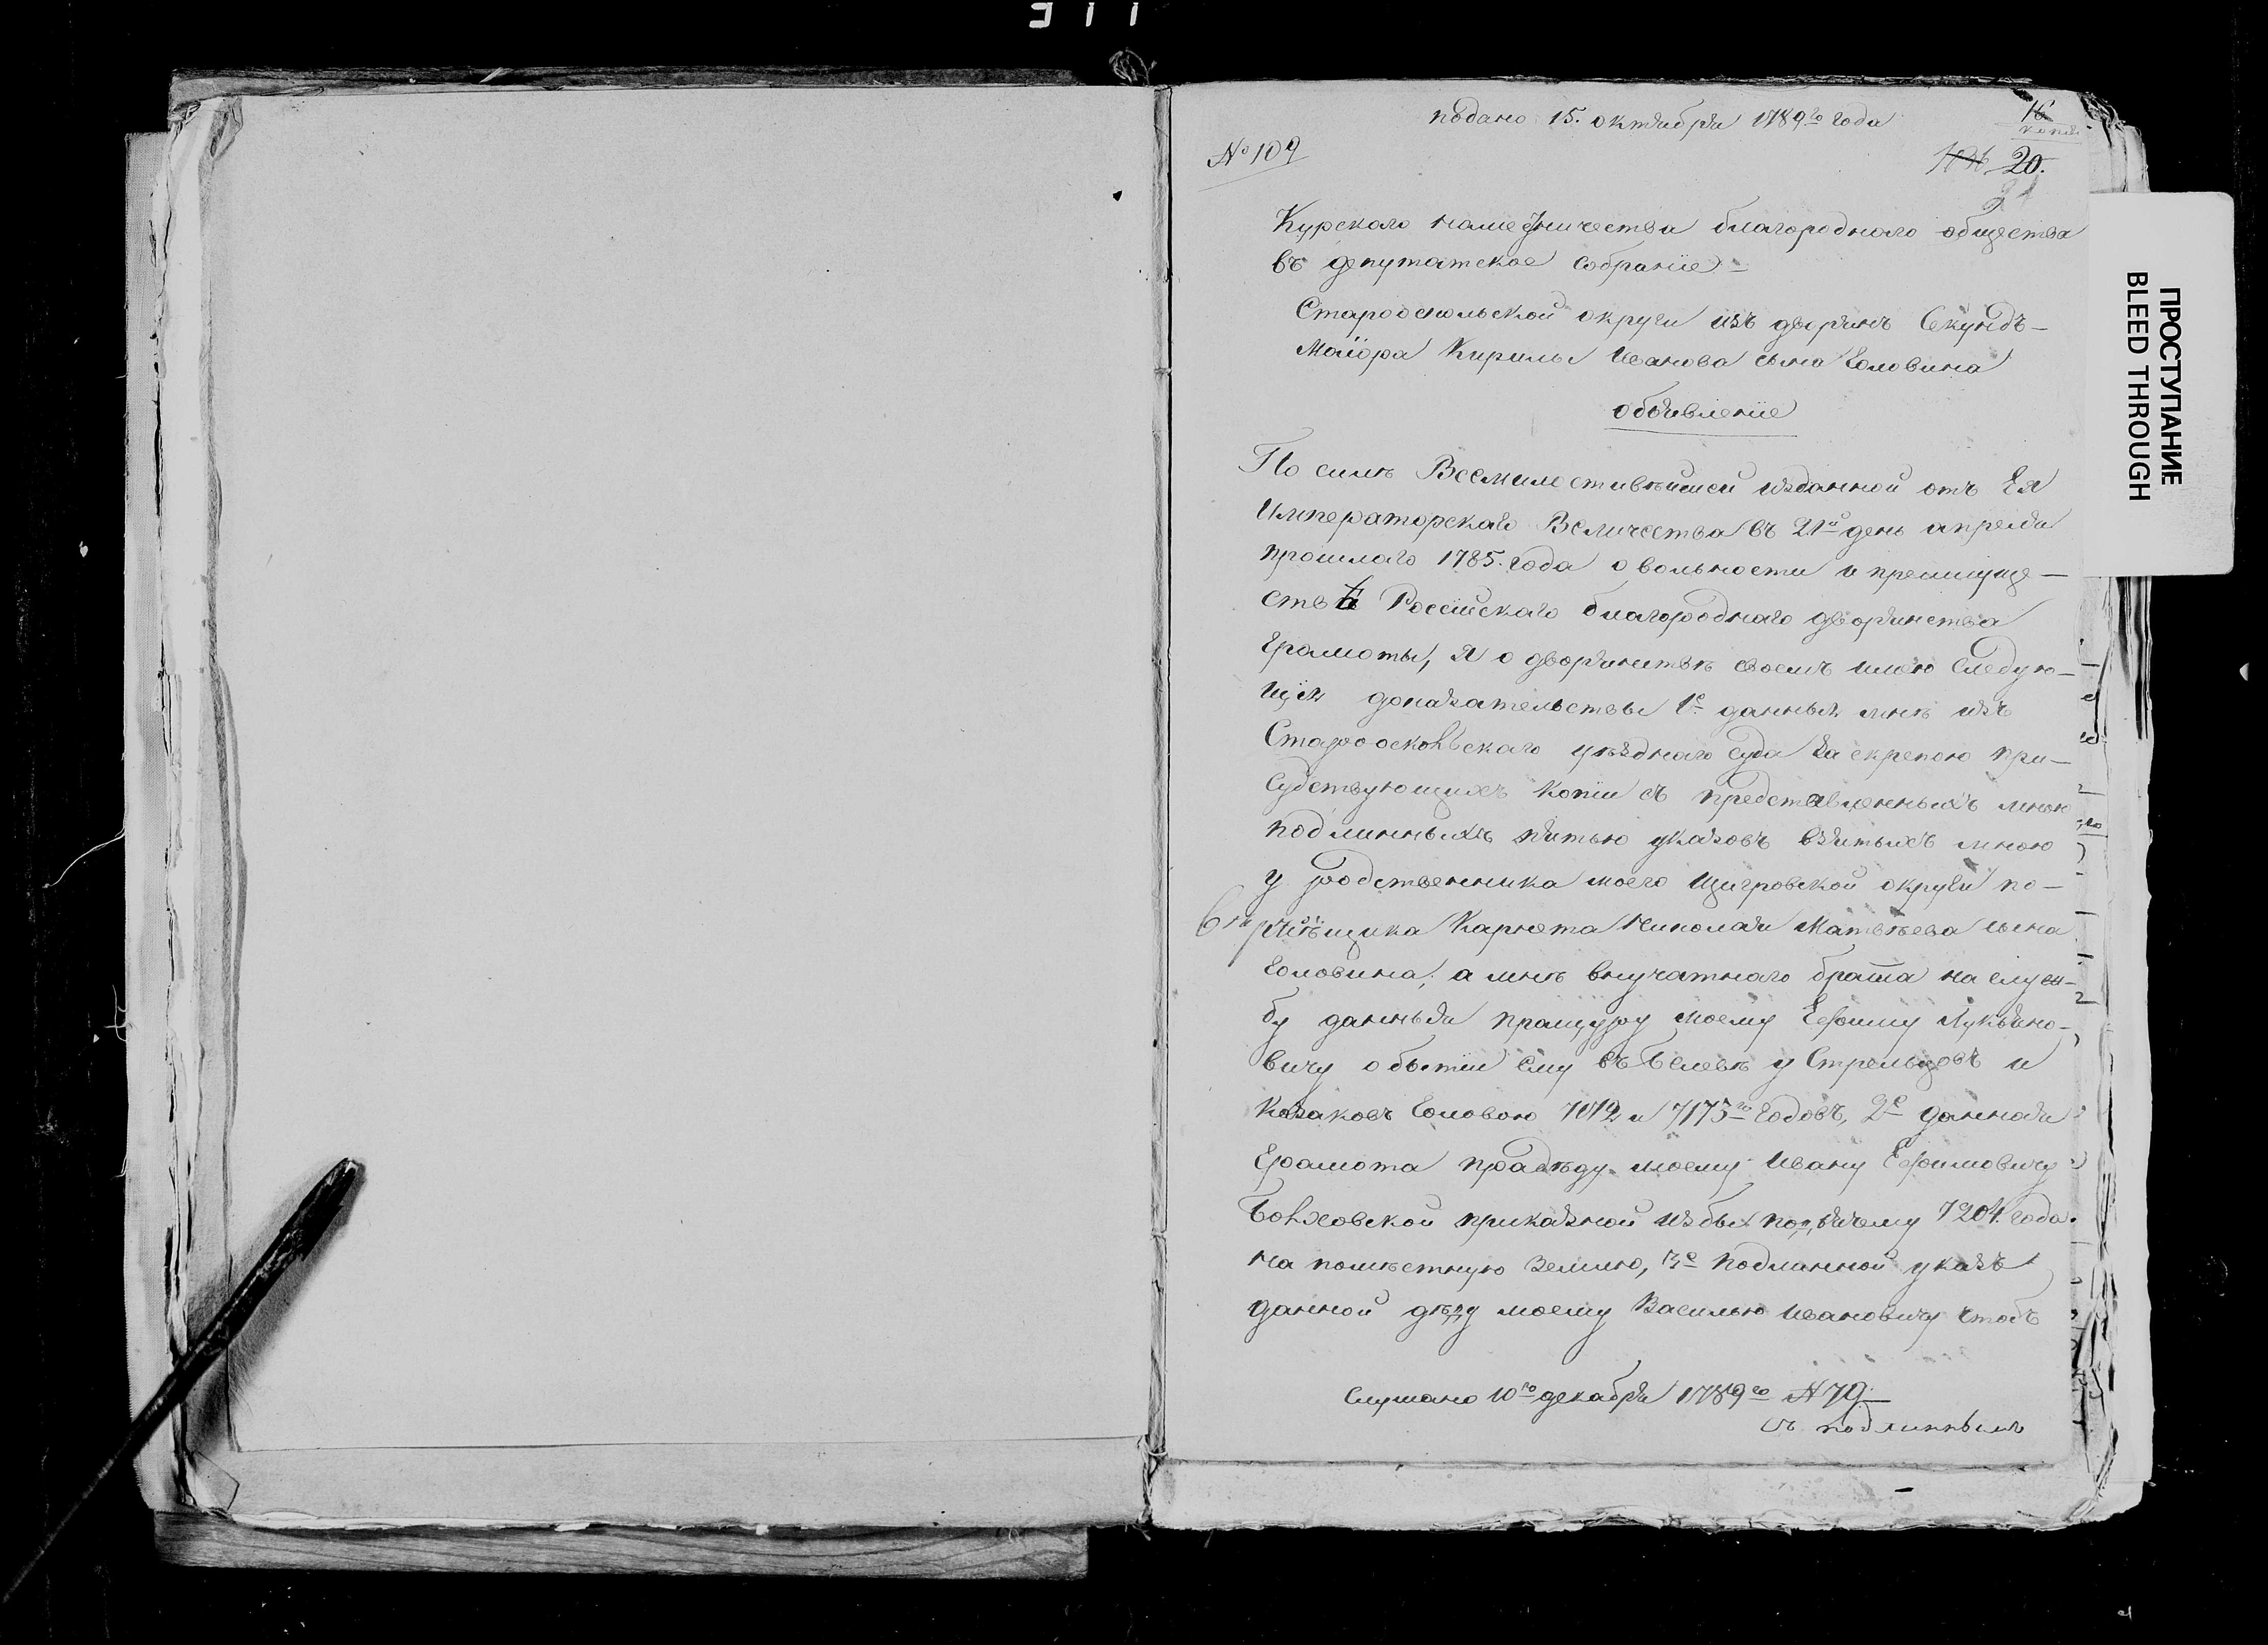 подано 15. октября 1789го года
16
копія
20.
№ 109
Курскаго наместничества благороднаго общества
въ депутатское собраніе
Старооскольской округи изъ дворянъ Секундъ-
Маіора Кирилы Иванова сына Головина
объявленіе
По силѣ Всемилостивѣйшей изданной отъ Ея
Императорскаго Величества въ 21е день апреля
прошлаго 1785. года о вольности и преимуще-
ствѣ Россійскаго благороднаго дворянства
грамоты, я о дворянствѣ своемъ имею следую-
щія доказательствы 1е данныя мнѣ изъ
Старооскольскаго уѣзднаго суда за скрепою при-
судствующихъ копіи съ представленныхъ мною
подлинныхъ пятью указовъ взятыхъ мною
у родственника моего Щигровской округи по-
мѣщика Карнета Николая Матвѣева сына
Головина, а мнѣ внучатнаго брата на служ-
бу данныя пращуру моему Ефиму Лукьяно-
вичу о бытіи ему въ Белевѣ у Стрельцовъ и
Казаковъ Головою и 7175го годовъ, 2е данная
Грамота прадѣду моему Ивану Ефимовичу
Болховской приказной избы подьячему 7204. года
на помѣстную землю, 3е подлинной указъ
данной дѣду моему Василью Ивановичу чтобъ
Слушано 10го декабря 1789го № 79
съ подлиннымъ
ПРОСТУПАНИЕ
BLEED THROUGH